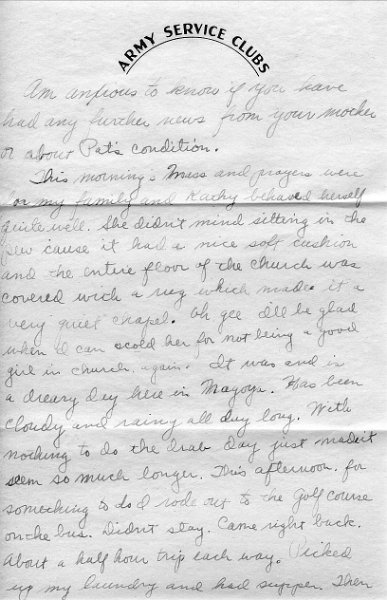 ARMY SERVICE CLUBS
Am anxious to know if you have
had any further news from your mother
or about Pat's condition.
This morning's Mass and prayers were
for my family and Kathy behaved herself
quite well. She didn't mind sitting in the
pew 'cause it had a nice soft cushion
and the entire floor of the church was
covered with a rug which made it a
very quiet chapel. Oh gee I'll be glad
when I can scold her for not being a good
girl in church again. It was and is
a dreary day here in Nagoya. Has been
cloudy and rainy all day long. With
nothing to do the drab day just made it
seem so much longer. This afternoon, for
something to do I rode out to the Golf course
on the bus. Didn't stay. Came right back.
About a half hour trip each way. Picked
up my laundry and had supper. Then